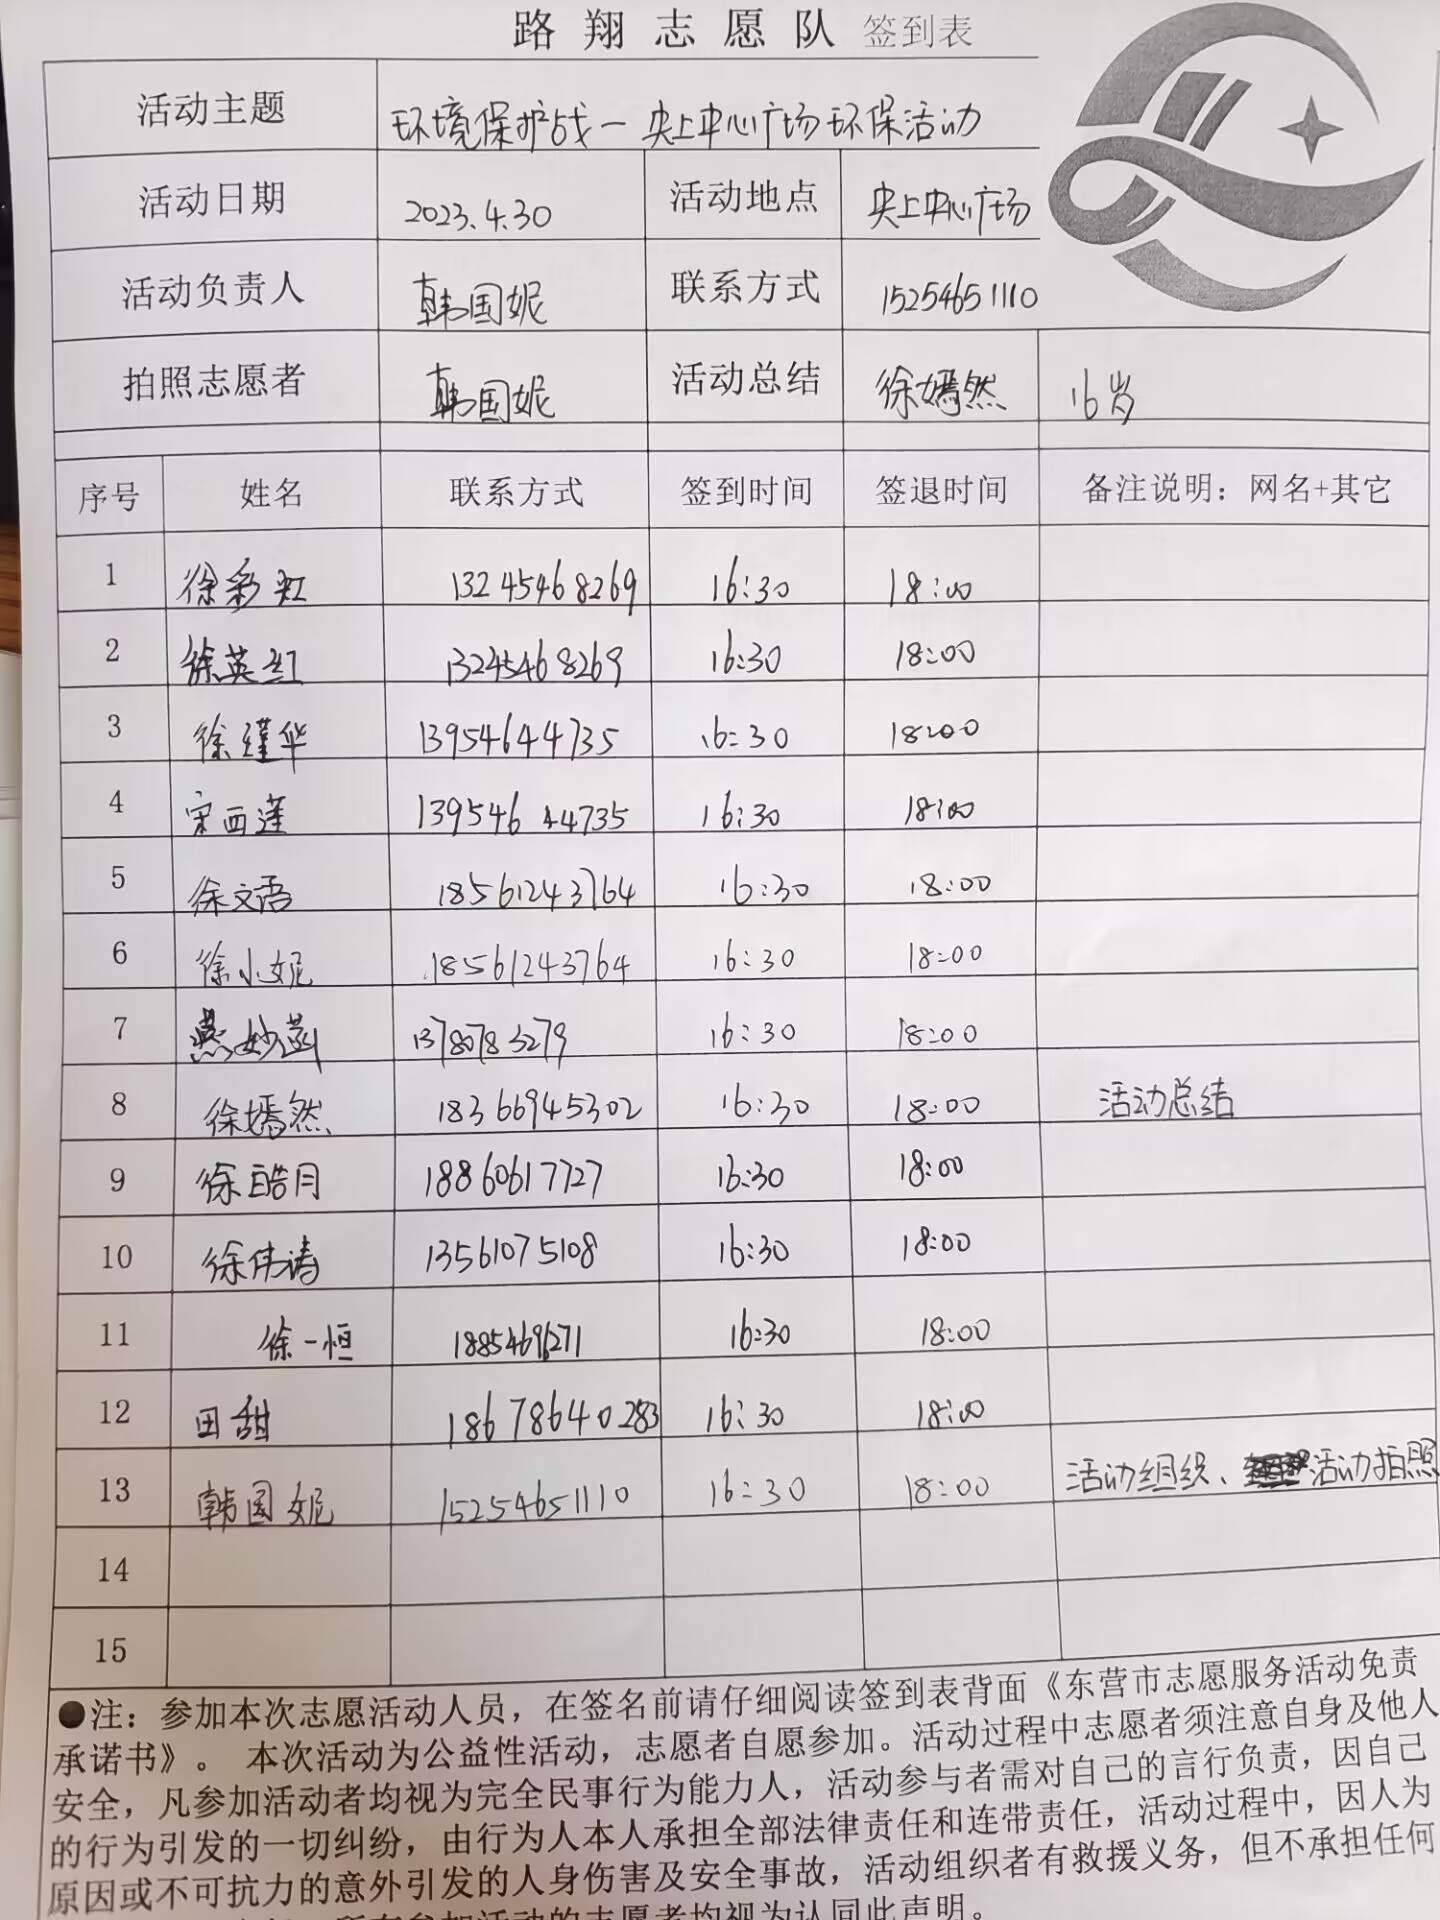 路翔志愿队 签到表
活动主题 环境保护战一央上中心广场环保活动
活动日期 2023.4.30 活动地点 央上中心广场
活动负责人 韩国妮 联系方式 15254651110
拍照志愿者 韩国妮 活动总结 徐嫣然 16岁
序号 姓名 联系方式 签到时间 签退时间 备注说明：网名+其它
1 徐彩虹 13245468269 16:30 18:00
2 徐英红 13245468269 16:30 18:00
3 徐瑾华 13954644735 16:30 18:00
4 宋西莲 13954644735 16:30 18:00
5 徐文语 18561243764 16:30 18:00
6 徐小妮 18561243764 16:30 18:00
7 燕妙菡 13780783279 16:30 18:00
8 徐嫣然 18366945302 16:30 18:00 活动总结
9 徐皓月 18860617727 16:30 18:00
10 徐伟涛 13561075108 16:30 18:00
11 徐一恒 18854696271 16:30 18:00
12 田甜 18678640283 16:30 18:00
13 韩国妮 15254651110 16:30 18:00 活动组织、活动拍照
14
15
●注：参加本次志愿活动人员，在签名前请仔细阅读签到表背面《东营市志愿服务活动免责
承诺书》。 本次活动为公益性活动，志愿者自愿参加。活动过程中志愿者须注意自身及他人
安全，凡参加活动者均视为完全民事行为能力人，活动参与者需对自己的言行负责，因自己
的行为引发的一切纠纷，由行为人本人承担全部法律责任和连带责任，活动过程中，因人为
原因或不可抗力的意外引发的人身伤害及安全事故，活动组织者有救援义务，但不承担任何
所有参加活动的志愿者均视为认同此声明。